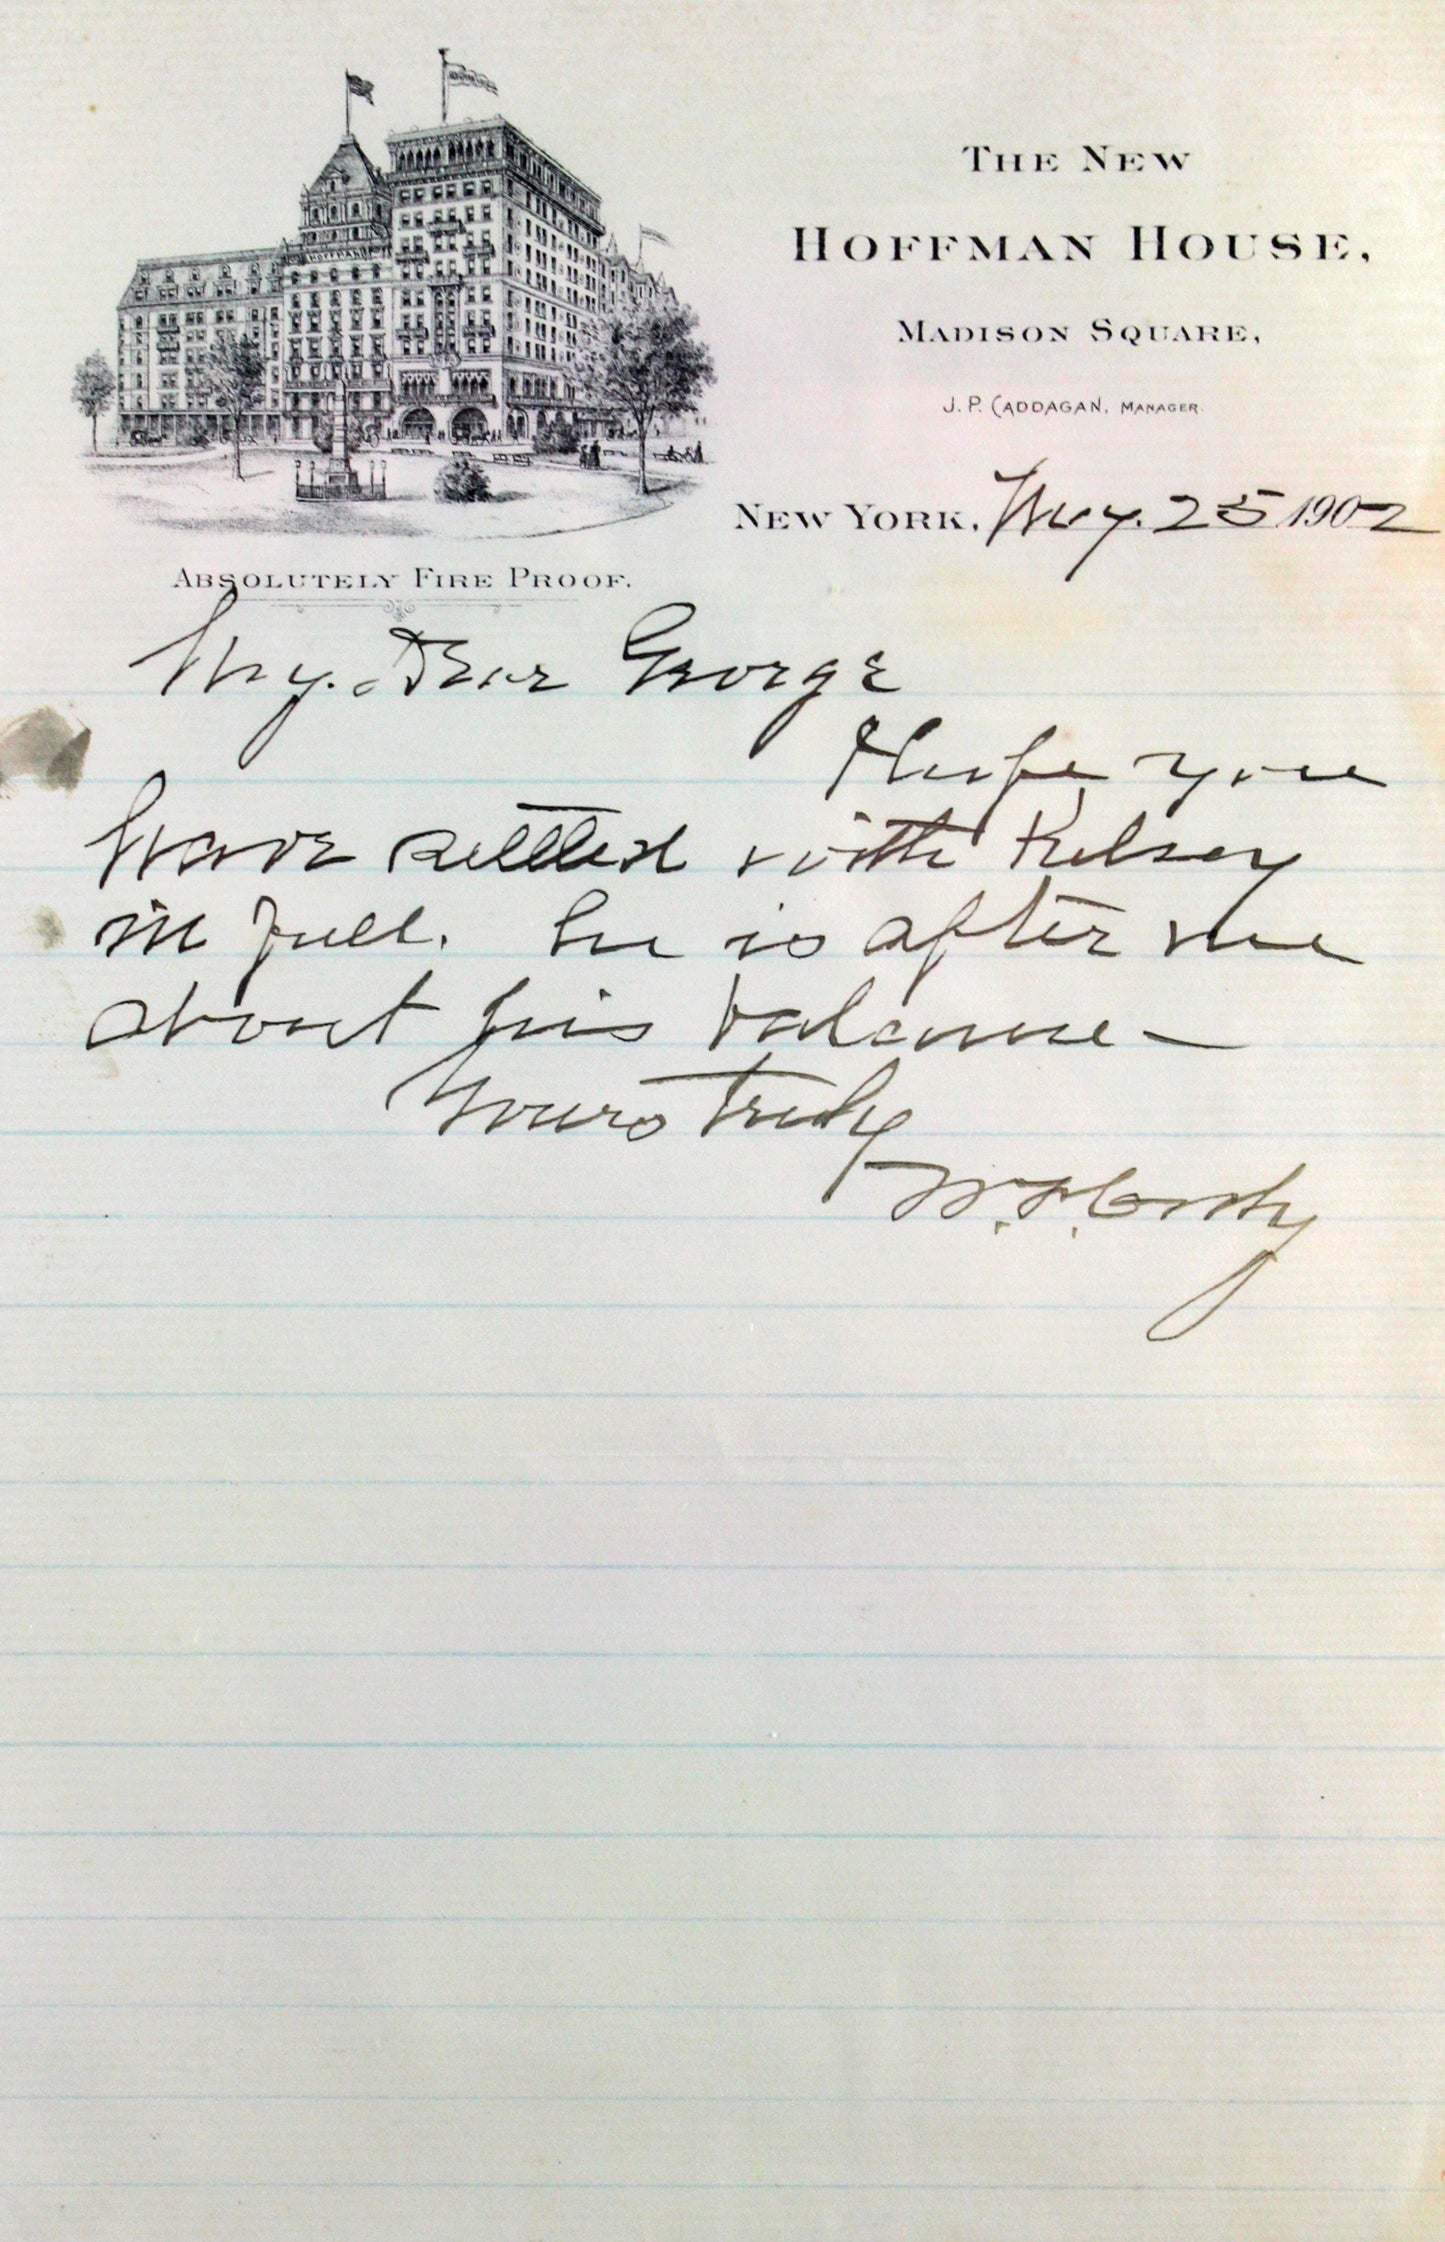 HOFFMAN
THE NEW
HOFFMAN HOUSE,
MADISON SQUARE,
J. P. CADDAGAN, MANAGER.
NEW YORK, May. 25 1902
ABSOLUTELY FIRE PROOF.
My. Dear George
Hope you
have settled with Kelsey
in full. he is after me
about his balance—
Yours truly
W. F. Cody